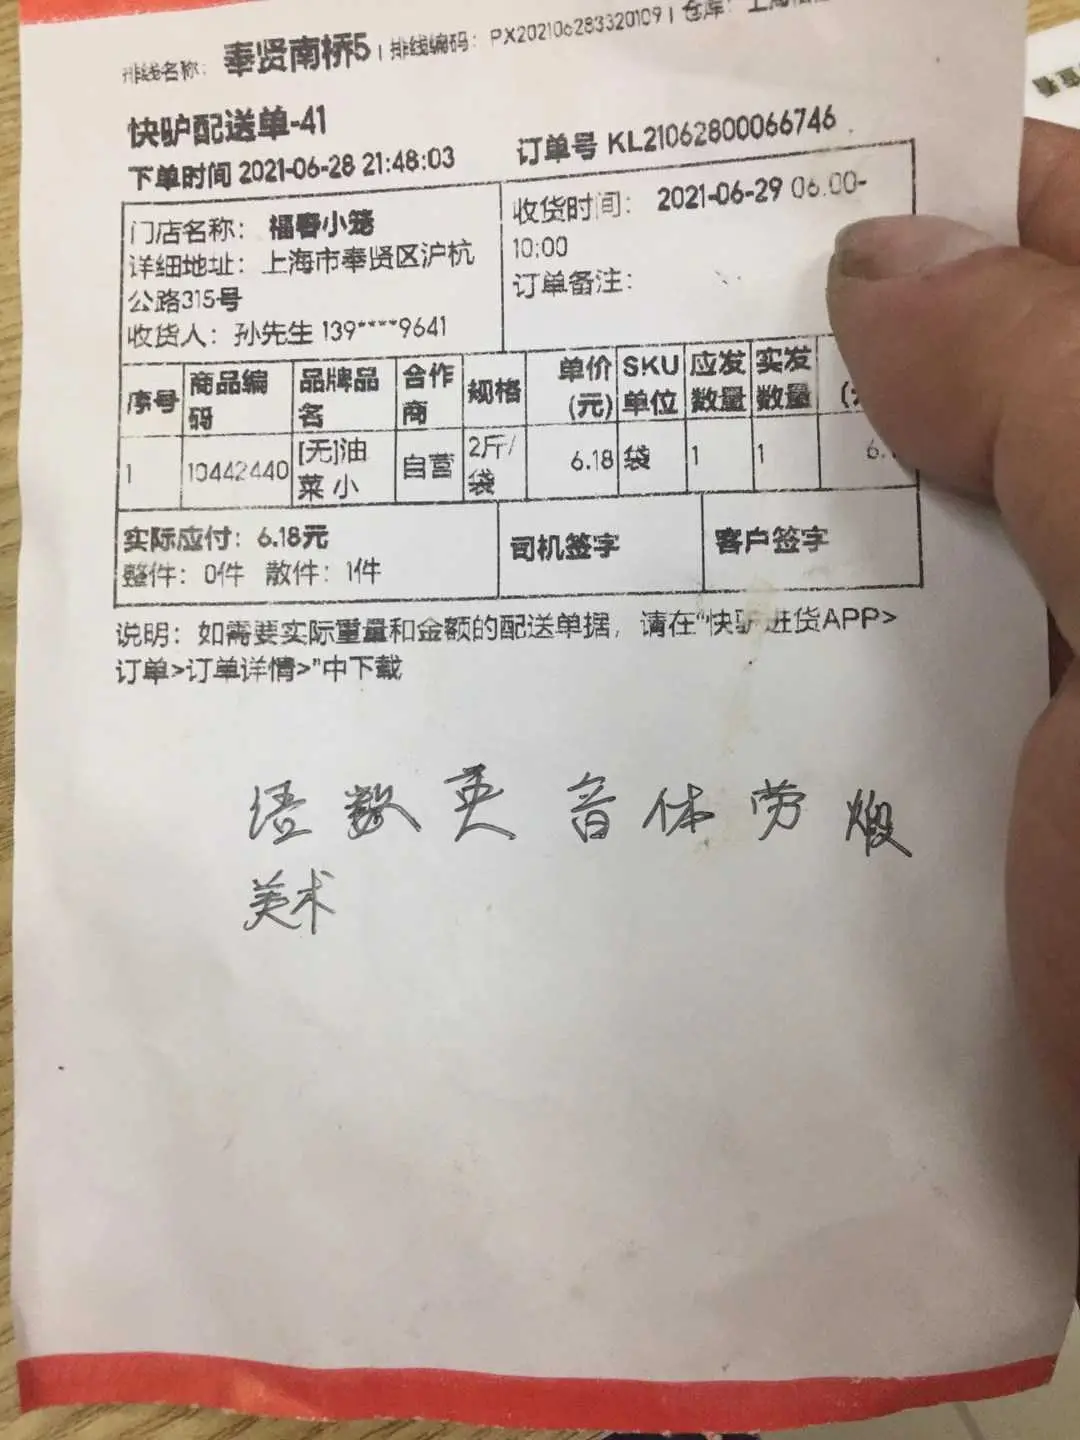 排线名称： 奉贤南桥5 | 排线编码：PX202106283320109 | 仓库：上海
快驴配送单-41
下单时间 2021-06-28 21:48:03
订单号 KL21062800066746
门店名称： 福春小笼
详细地址：上海市奉贤区沪杭
公路315号
收货人：孙先生 139****9641
收货时间： 2021-06-29 06:00-
10:00
订单备注：
序号 商品编码 品牌品名 合作商 规格 单价(元) SKU单位 应发数量 实发数量
1 10442440 [无]油菜 小 自营 2斤/袋 6.18 袋 1 1
实际应付：6.18元
整件：0件 散件：1件
司机签字
客户签字
说明：如需要实际重量和金额的配送单据，请在“快驴进货APP>
订单>订单详情>”中下载
语 数 英 音 体 劳 煅
美术